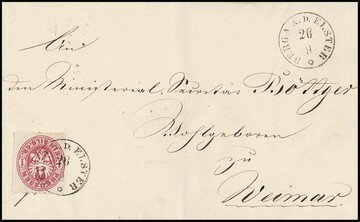 BERGA A. D. ELSTER
26
9
An
den Ministerial-Secretär Böttger
Wohlgeboren
zu
Weimar.
A. D. ELSTER
26